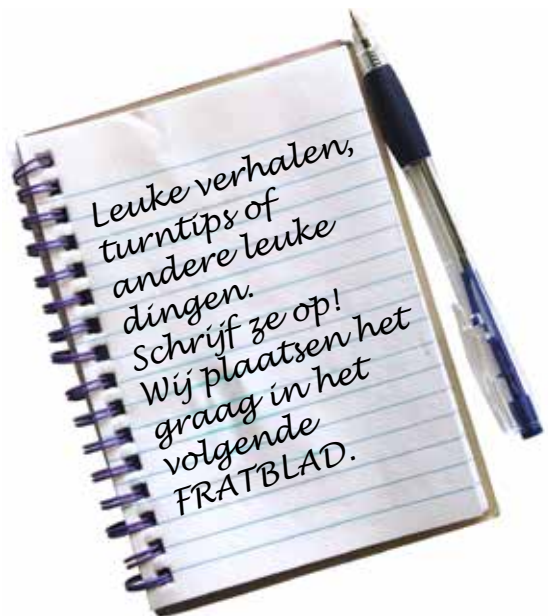 Leuke verhalen,
turntips of
andere leuke
dingen.
Schrijf ze op!
Wij plaatsen het
graag in het
volgende
FRATBLAD.